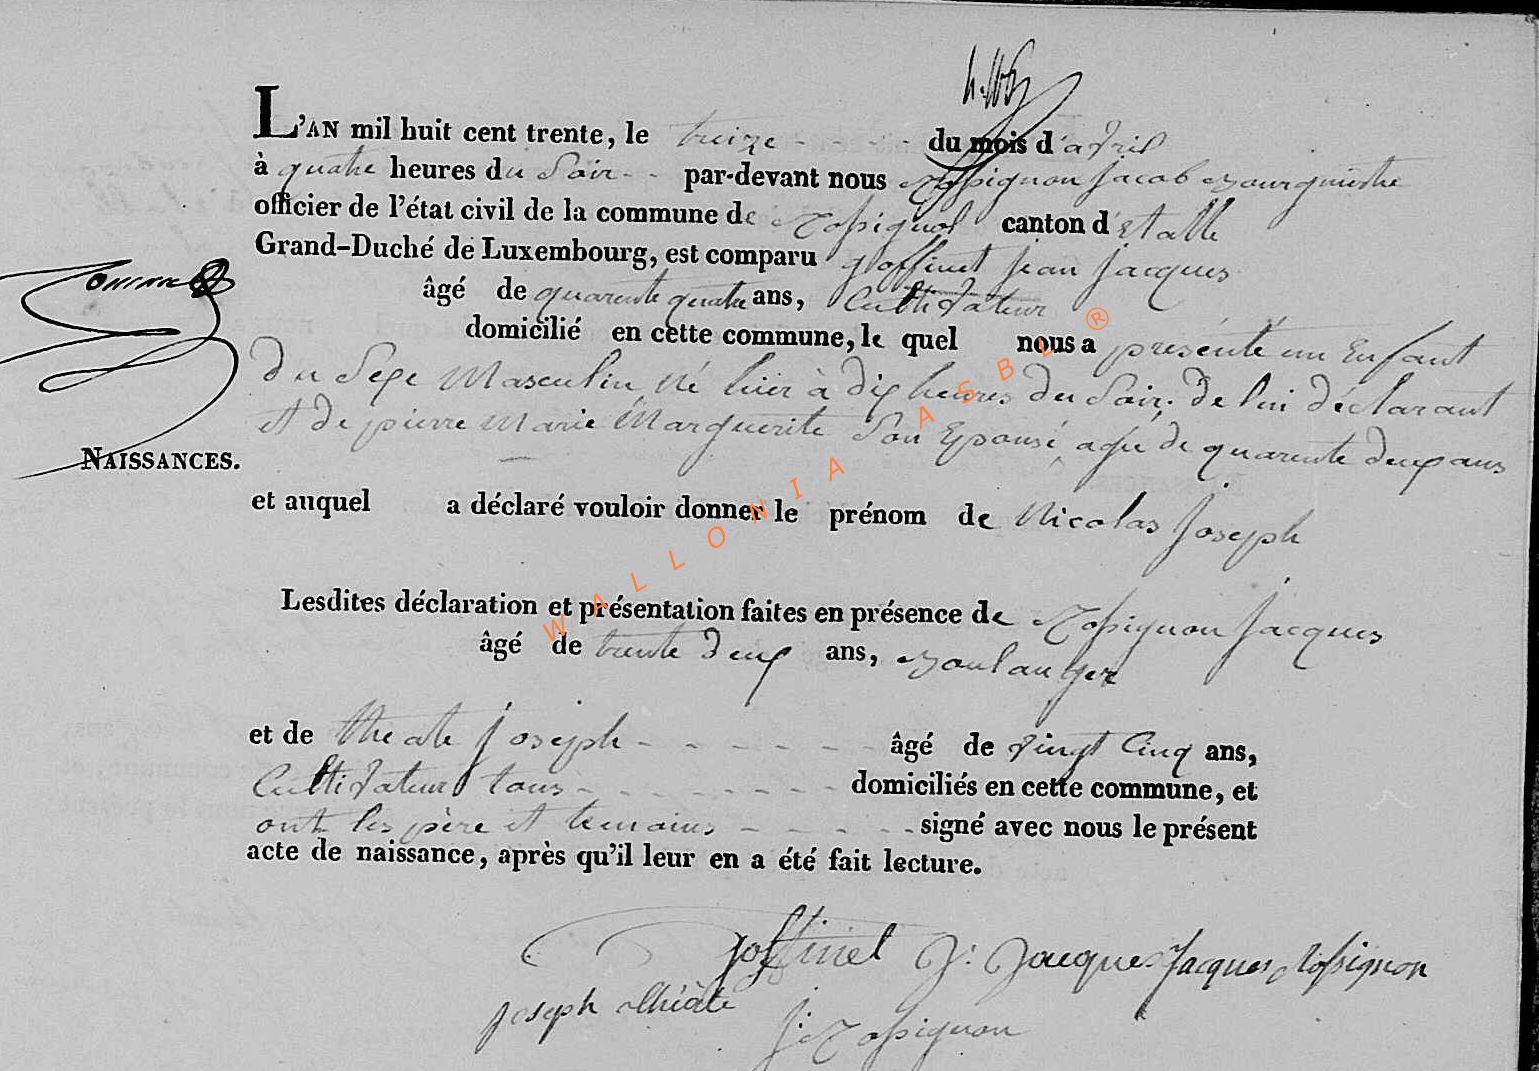 L'AN mil huit cent trente, le treize du mois d'avril
à quatre heures du Soir par-devant nous Rossignon Jacob Bourgmestre
officier de l'état civil de la commune de Rossignol canton d'Etalle
Grand-Duché de Luxembourg, est comparu goffinet jean jacques
âgé de quarente quatre ans, Cultivateur
domicilié en cette commune, le quel nous a présenté un Enfant
du Sexe Masculin né hier à dix heures du Soir, de lui déclarant
et de pierre Marie Marguerite Son Epouse, agée de quarente deux ans
NAISSANCES.
et auquel a déclaré vouloir donner le prénom de Nicolas Joseph
Lesdites déclaration et présentation faites en présence de Rossignon Jacques
âgé de trente deux ans, Boulanger
et de theate joseph âgé de vingt Cinq ans,
Cultivateur tous domiciliés en cette commune, et
ont les père et temoins signé avec nous le présent
acte de naissance, après qu'il leur en a été fait lecture.
goffinet J: Jacques Jacques Rossignon
joseph thiâte
J: Rossignon
WALLONIA ASBL ®